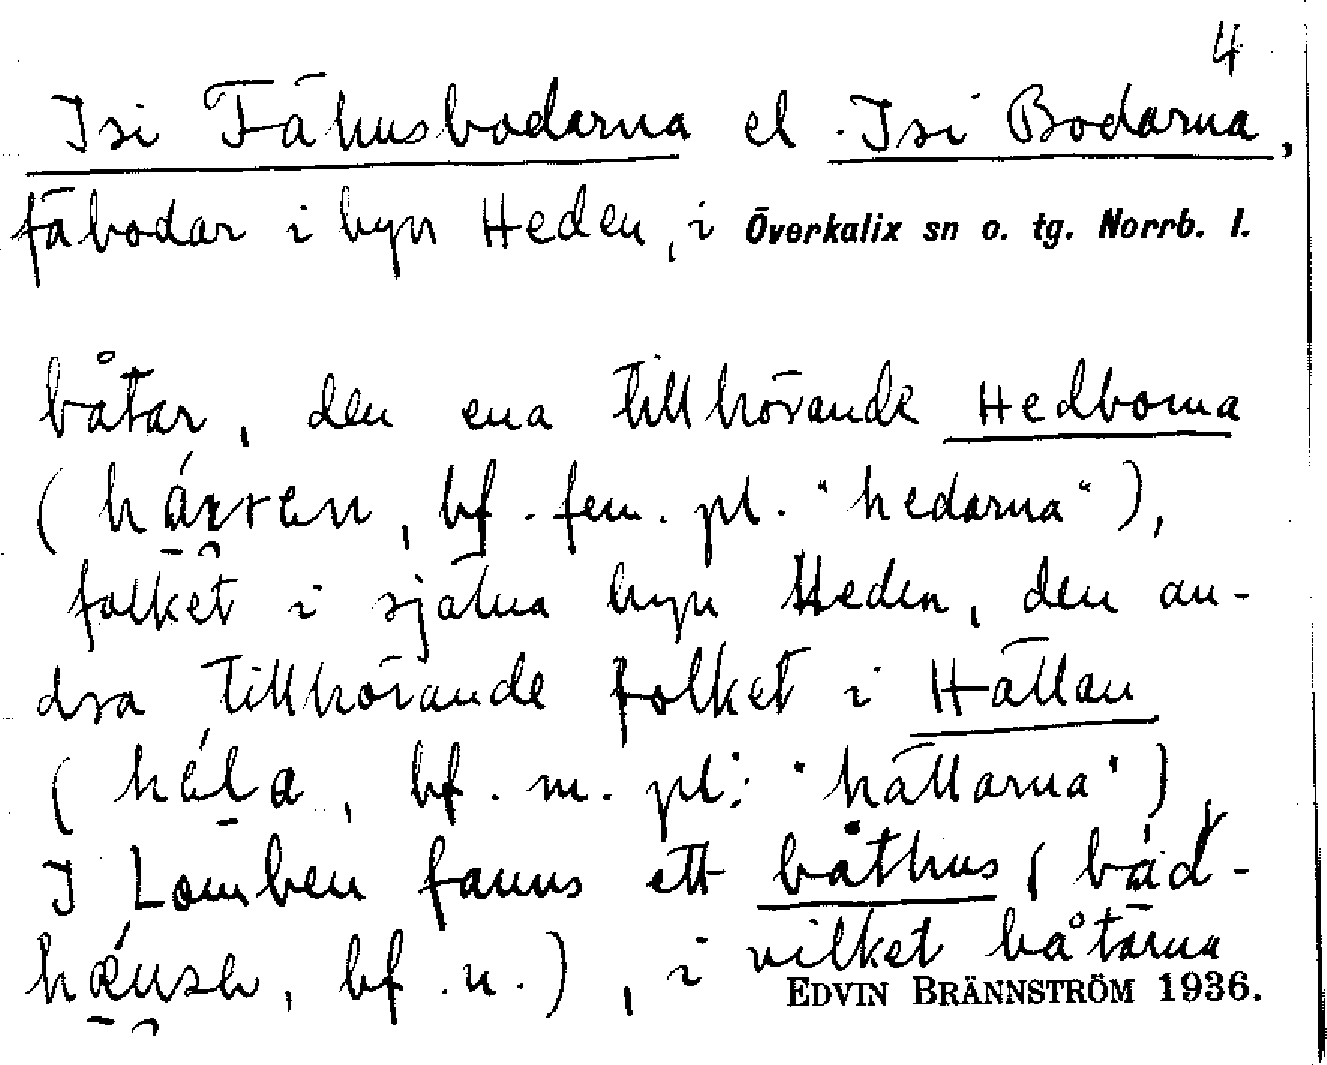 4
Isi Fähusbodarna el. Isi Bodarna,
fäbodar i byn Heden, i Överkalix sn o. tg. Norrb. l.
båtar, den ena tillhörande Hedborna
( bf. fem. pl. "hedarna"),
folket i själva byn Heden, den an-
dra tillhörande folket i Hällan
(héla, bf. m. pl. "hällarna"),
I Lomben fanns ett båthus (båd-
bf. n.), i vilket båtarna
EDVIN BRÄNNSTRÖM 1936.